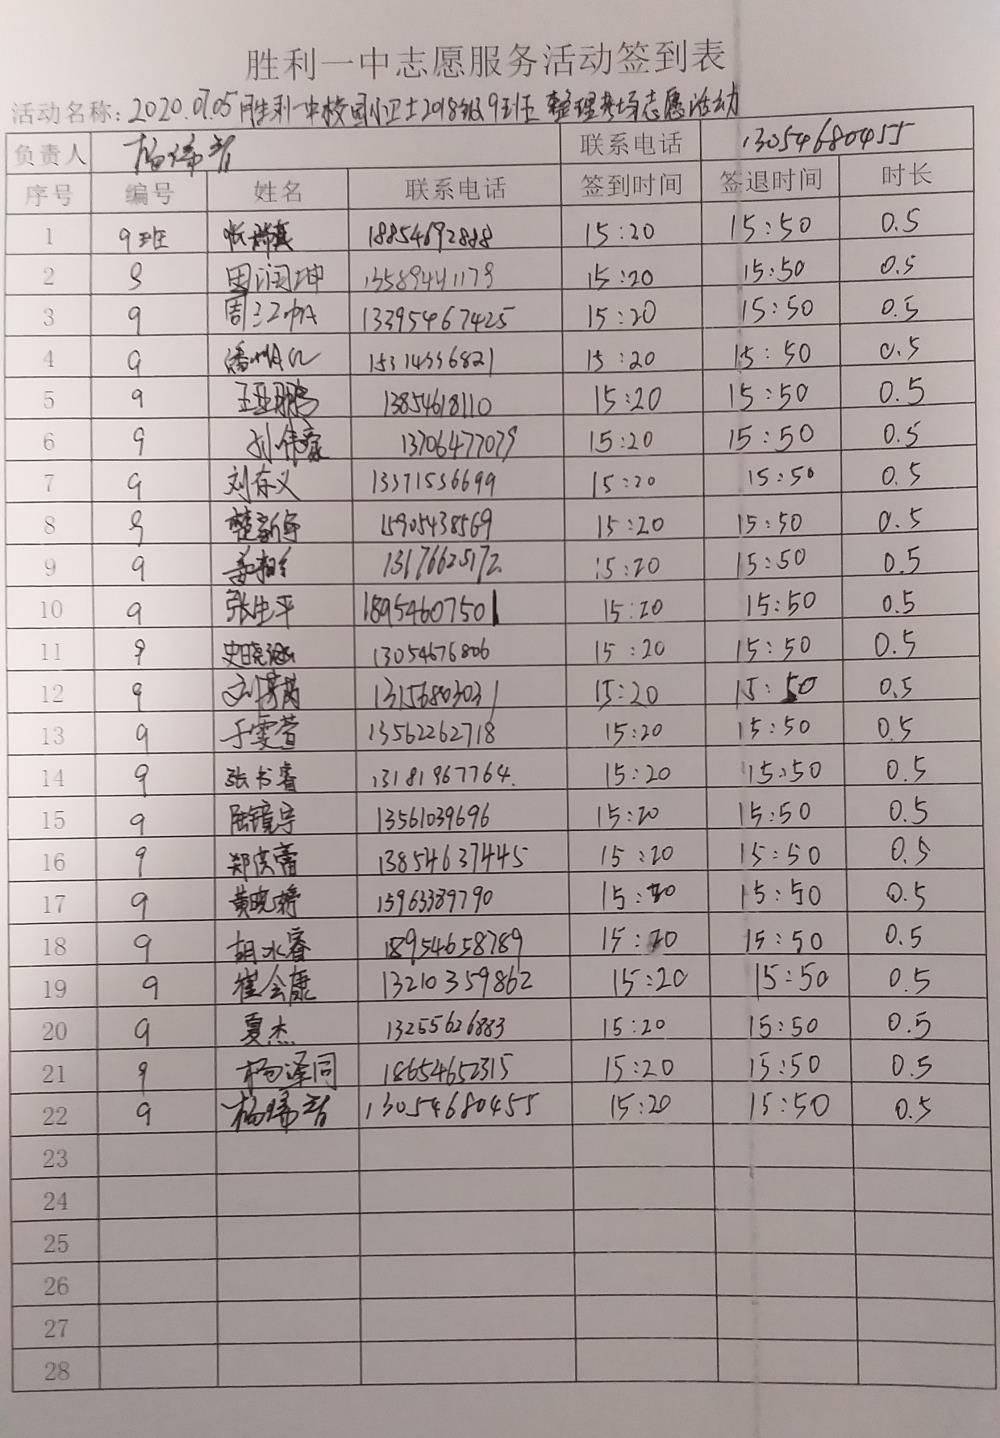 胜利一中志愿服务活动签到表
活动名称: 2020.07.05 胜利一中校园小卫士2018级9班 整理考场志愿活动
负责人 联系电话 13054680455
序号 编号 姓名 联系电话 签到时间 签退时间 时长
1 9班 18854692888 15:20 15:50 0.5
2 9 周润坤 13589441179 15:20 15:50 0.5
3 9 周 13395467425 15:20 15:50 0.5
4 9 15314336821 15:20 15:50 0.5
5 9 王亚鹏 13854618110 15:20 15:50 0.5
6 9 刘伟豪 13706477079 15:20 15:50 0.5
7 9 刘存义 13371536699 15:20 15:50 0.5
8 9 楚 15905438569 15:20 15:50 0.5
9 9 姜 13176625172 15:20 15:50 0.5
10 9 张生平 18954607501 15:20 15:50 0.5
11 9 史晓涵 13054676806 15:20 15:50 0.5
12 9 刘 13156803031 15:20 15:50 0.5
13 9 于雯萱 13562262718 15:20 15:50 0.5
14 9 张书睿 13181967764. 15:20 15:50 0.5
15 9 陆镜宇 13561039696 15:20 15:50 0.5
16 9 郑庆蕾 13854637445 15:20 15:50 0.5
17 9 黄晓婷 15963389790 15:20 15:50 0.5
18 9 胡水睿 18954658789 15:20 15:50 0.5
19 9 崔会康 13210359862 15:20 15:50 0.5
20 9 夏杰 13255626883 15:20 15:50 0.5
21 9 杨泽同 18654652315 15:20 15:50 0.5
22 9 13054680455 15:20 15:50 0.5
23
24
25
26
27
28